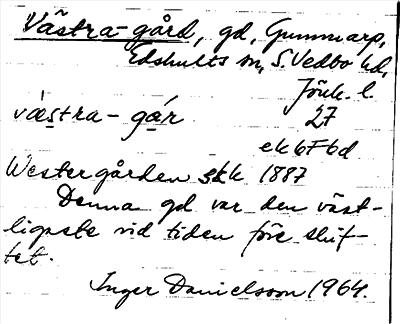 Västra-gård, gd, Gummarp,
Edshults sn, S. Vedbo hd,
Jönk. l.
västra-gár 27
ek 6F6d
Westergården skk 1887
Denna gd var den väst-
ligaste vid tiden före skif-
tet.
Inger Danielsson 1964.